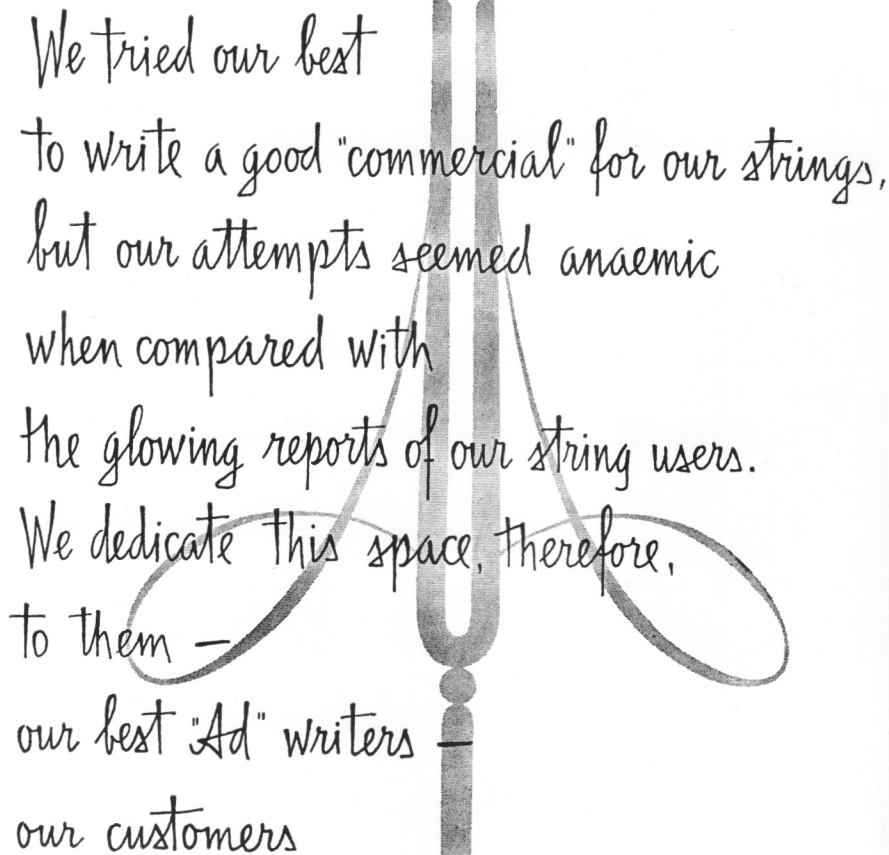 We tried our best
to write a good "commercial" for our strings,
but our attempts seemed anaemic
when compared with
the glowing reports of our string users.
We dedicate this space, therefore,
to them —
our best "Ad" writers —
our customers